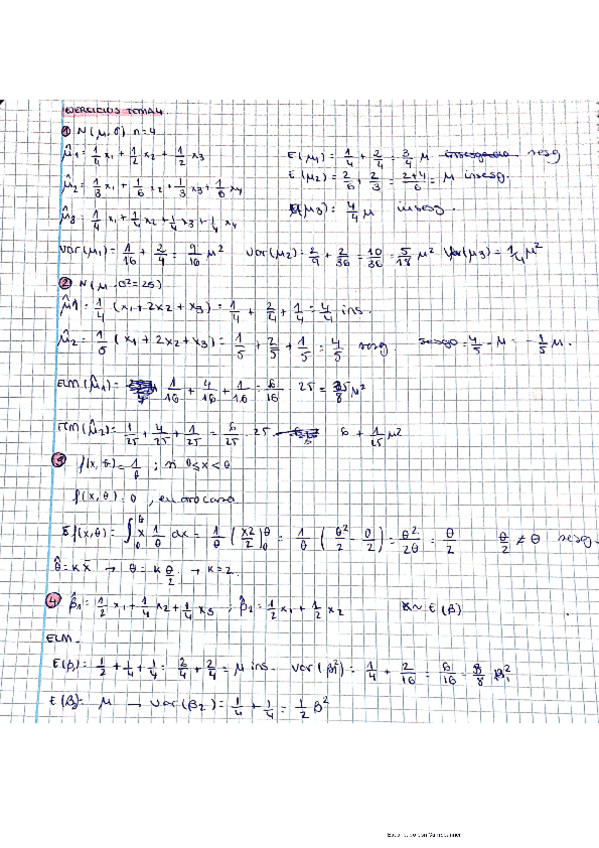 EJERCICIOS TEMA 4.
① N(μ, σ) n=4
μ̂1 = 1/4 x1 + 1/2 x2 + 1/2 x3 E(μ1) = 1/4 + 2/4 = 3/4 μ sesg
μ̂2 = 1/3 x1 + 1/6 x2 + 1/3 x3 + 1/6 x4 E(μ2) = 2/6 + 2/3 = 2+4/6 = μ insesg.
μ̂3 = 1/4 x1 + 1/4 x2 + 1/4 x3 + 1/4 x4 E(μ3) = 4/4 μ insesg.
Var(μ1) = 1/16 + 2/4 = 9/16 μ² Var(μ2) = 2/9 + 2/36 = 10/36 = 5/18 μ² Var(μ3) = 1/4 μ²
② N(μ, σ²=25)
μ̂1 = 1/4 (x1 + 2x2 + x3) = 1/4 + 2/4 + 1/4 = 4/4 ins.
μ̂2 = 1/5 (x1 + 2x2 + x3) = 1/5 + 2/5 + 1/5 = 4/5 sesg. sesgo = 4/5 - μ = -1/5 μ.
ECM(μ̂1) = 1/16 + 4/16 + 1/16 = 6/16 · 25 = /8 μ²
ECM(μ̂2) = 1/25 + 4/25 + 1/25 = 6/25 · 25 6 + 1/25 μ²
③ f(x, θ) = 1/θ ; si 0≤x<θ
f(x, θ) = 0 , en otro caso
E f(x, θ) = ∫₀^θ x 1/θ dx = 1/θ (x²/2)₀^θ = 1/θ (θ²/2 - 0/2) = θ²/2θ = θ/2 θ/2 ≠ θ sesg.
θ̂ = k x̄ → θ = k θ/2 → k = 2.
④ β̂1 = 1/2 x1 + 1/4 x2 + 1/4 x3 ; β̂2 = 1/2 x1 + 1/2 x2 x ~ E(β)
ECM.
E(β) = 1/2 + 1/4 + 1/4 = 2/4 + 2/4 = μ ins. Var(β̂) = 1/4 + 2/16 = 6/16 = /8 β²
E(β) = μ → Var(β2) = 1/4 + 1/4 = 1/2 β²